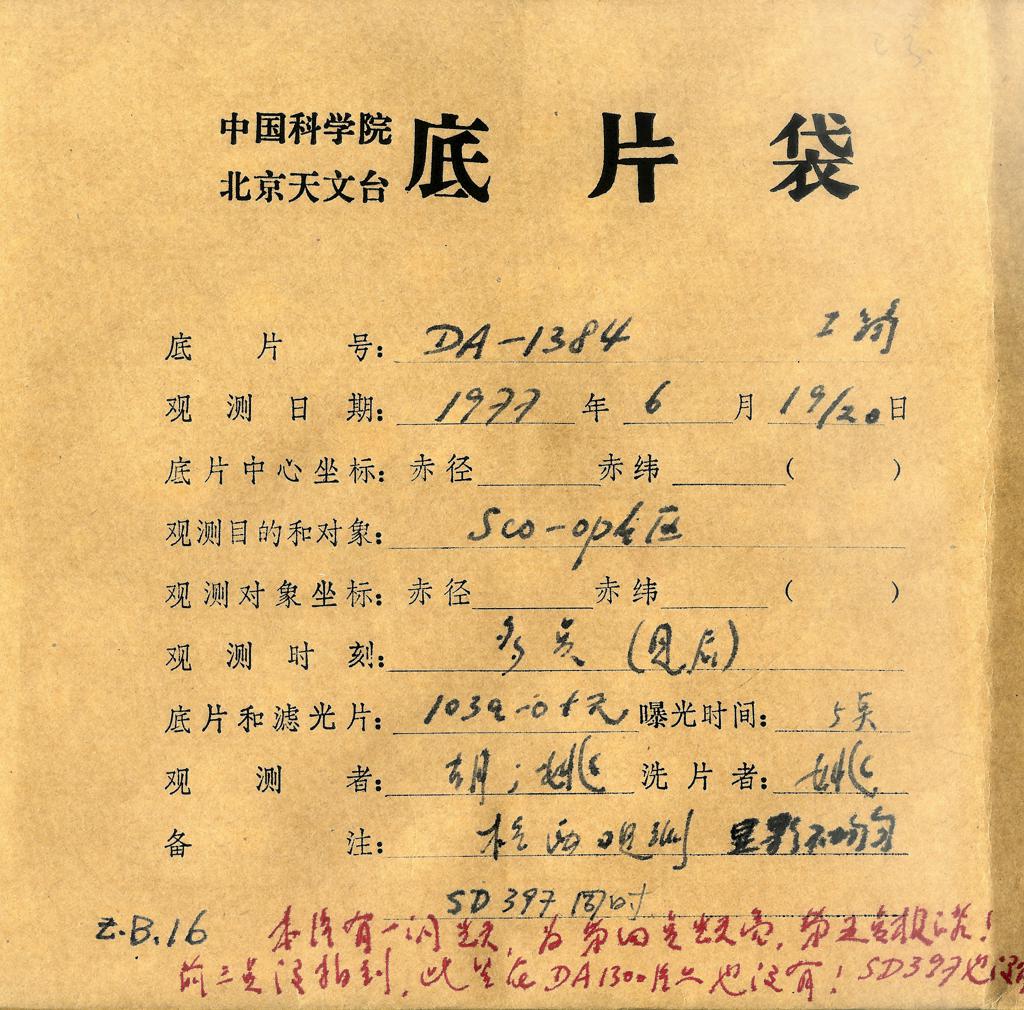 中国科学院
北京天文台 底片袋
底片号: DA-1384 工前
观测日期: 1977 年 6 月 19/20 日
底片中心坐标: 赤径 赤纬 ( )
观测目的和对象: Sco-oph 区
观测对象坐标: 赤径 赤纬 ( )
观测时刻: 多点 (见后)
底片和滤光片: 103a-O 曝光时间: 5点
观测者: 胡; 姚 洗片者: 姚
备注: 显影不均匀
SD 397 同时
Z.B.16 本片有一闪光, 为第四点
前三点没拍到, 此点在 DA1300 片上也没有! SD397也没